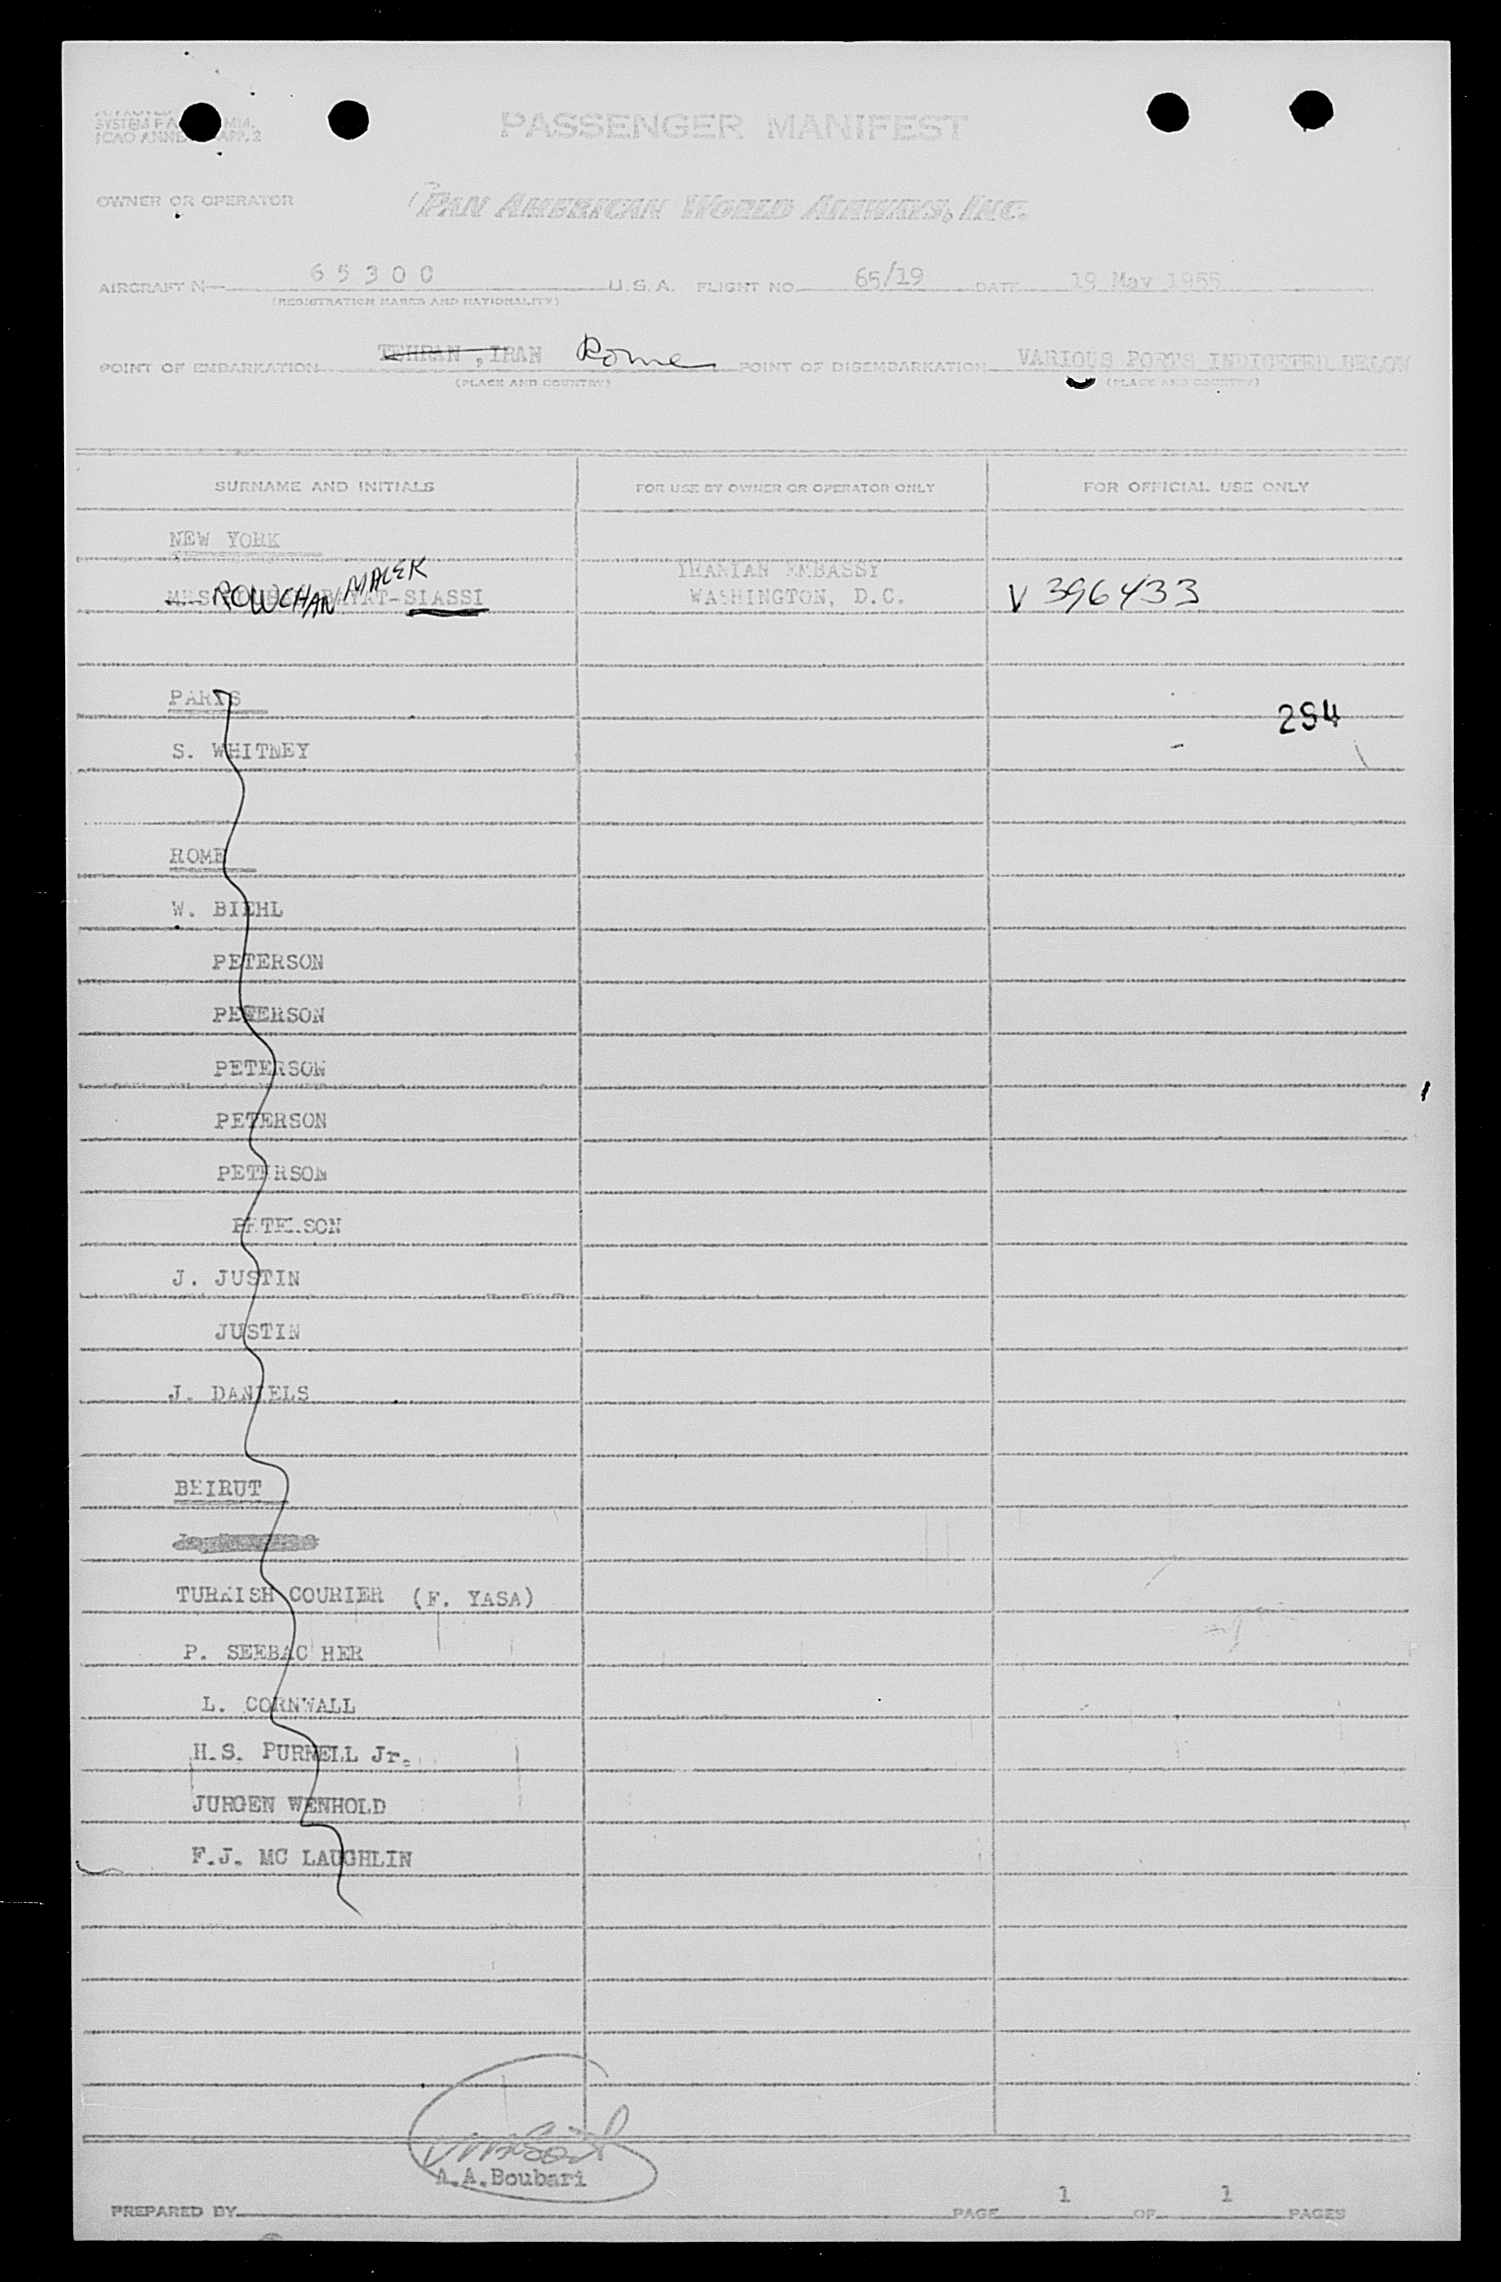 PASSENGER MANIFEST
OWNER OR OPERATOR PAN AMERICAN WORLD AIRWAYS, INC.
AIRCRAFT N— 65300 U.S.A. FLIGHT NO. 65/19 DATE 19 May 1955
(REGISTRATION MARKS AND NATIONALITY)
POINT OF EMBARKATION TEHRAN, IRAN Rome POINT OF DISEMBARKATION VARIOUS PORTS INDICETED BELOW
(PLACE AND COUNTRY) (PLACE AND COUNTRY)
SURNAME AND INITIALS FOR USE BY OWNER OR OPERATOR ONLY FOR OFFICIAL USE ONLY
NEW YORK
IRANIAN EMBASSY
ROWCHAN MALEK -SIASSI WASHINGTON, D.C. V 396433
PARIS
254
S. WHITNEY
ROME
W. BIEHL
PETERSON
PETERSON
PETERSON
PETERSON
PETERSON
PETERSON
J. JUSTIN
JUSTIN
J. DANIELS
BEIRUT
TURKISH COURIER (F. YASA)
P. SEEBAC HER
L. CORNWALL
H.S. PURNELL Jr.
JURGEN WENHOLD
F.J. MC LAUGHLIN
A.A.Boubari
PREPARED BY PAGE 1 OF 1 PAGES